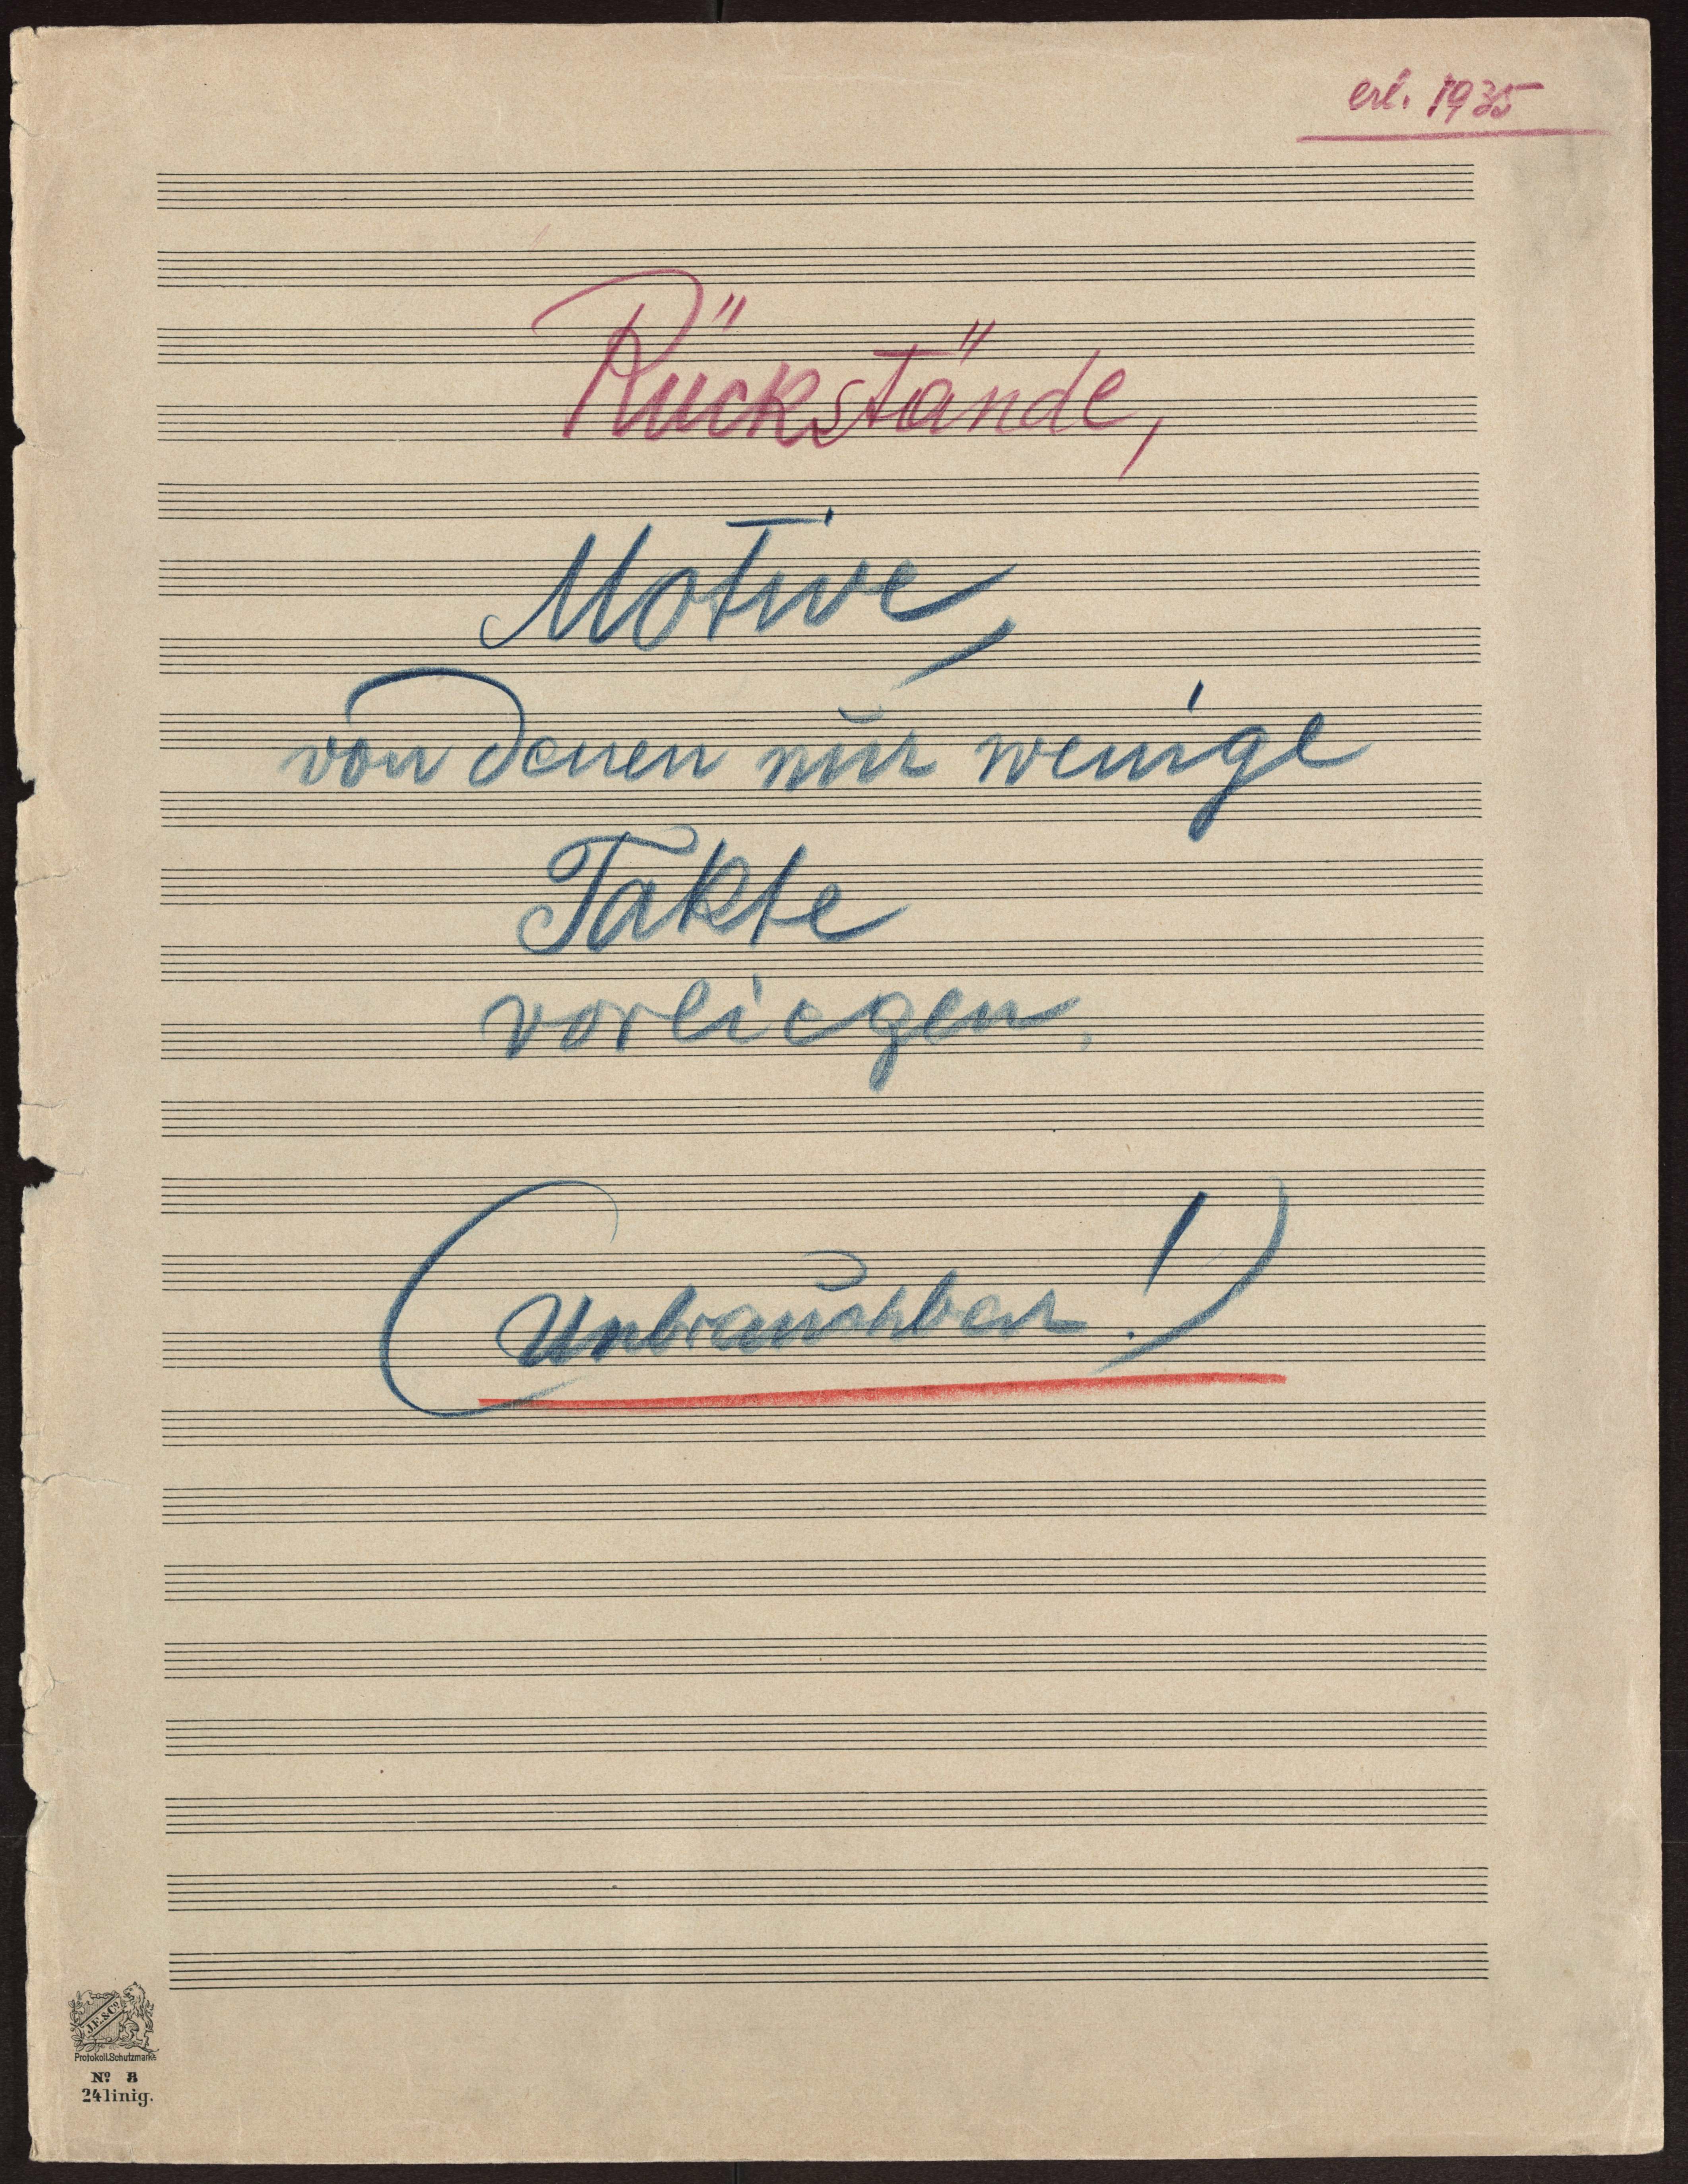 erl. 1935
Rückstände,
Motive,
von denen nur wenige
Takte
vorliegen.
(Unbrauchbar!)
J.E.&Co.
Protokoll.Schutzmarke
No 8
24linig.